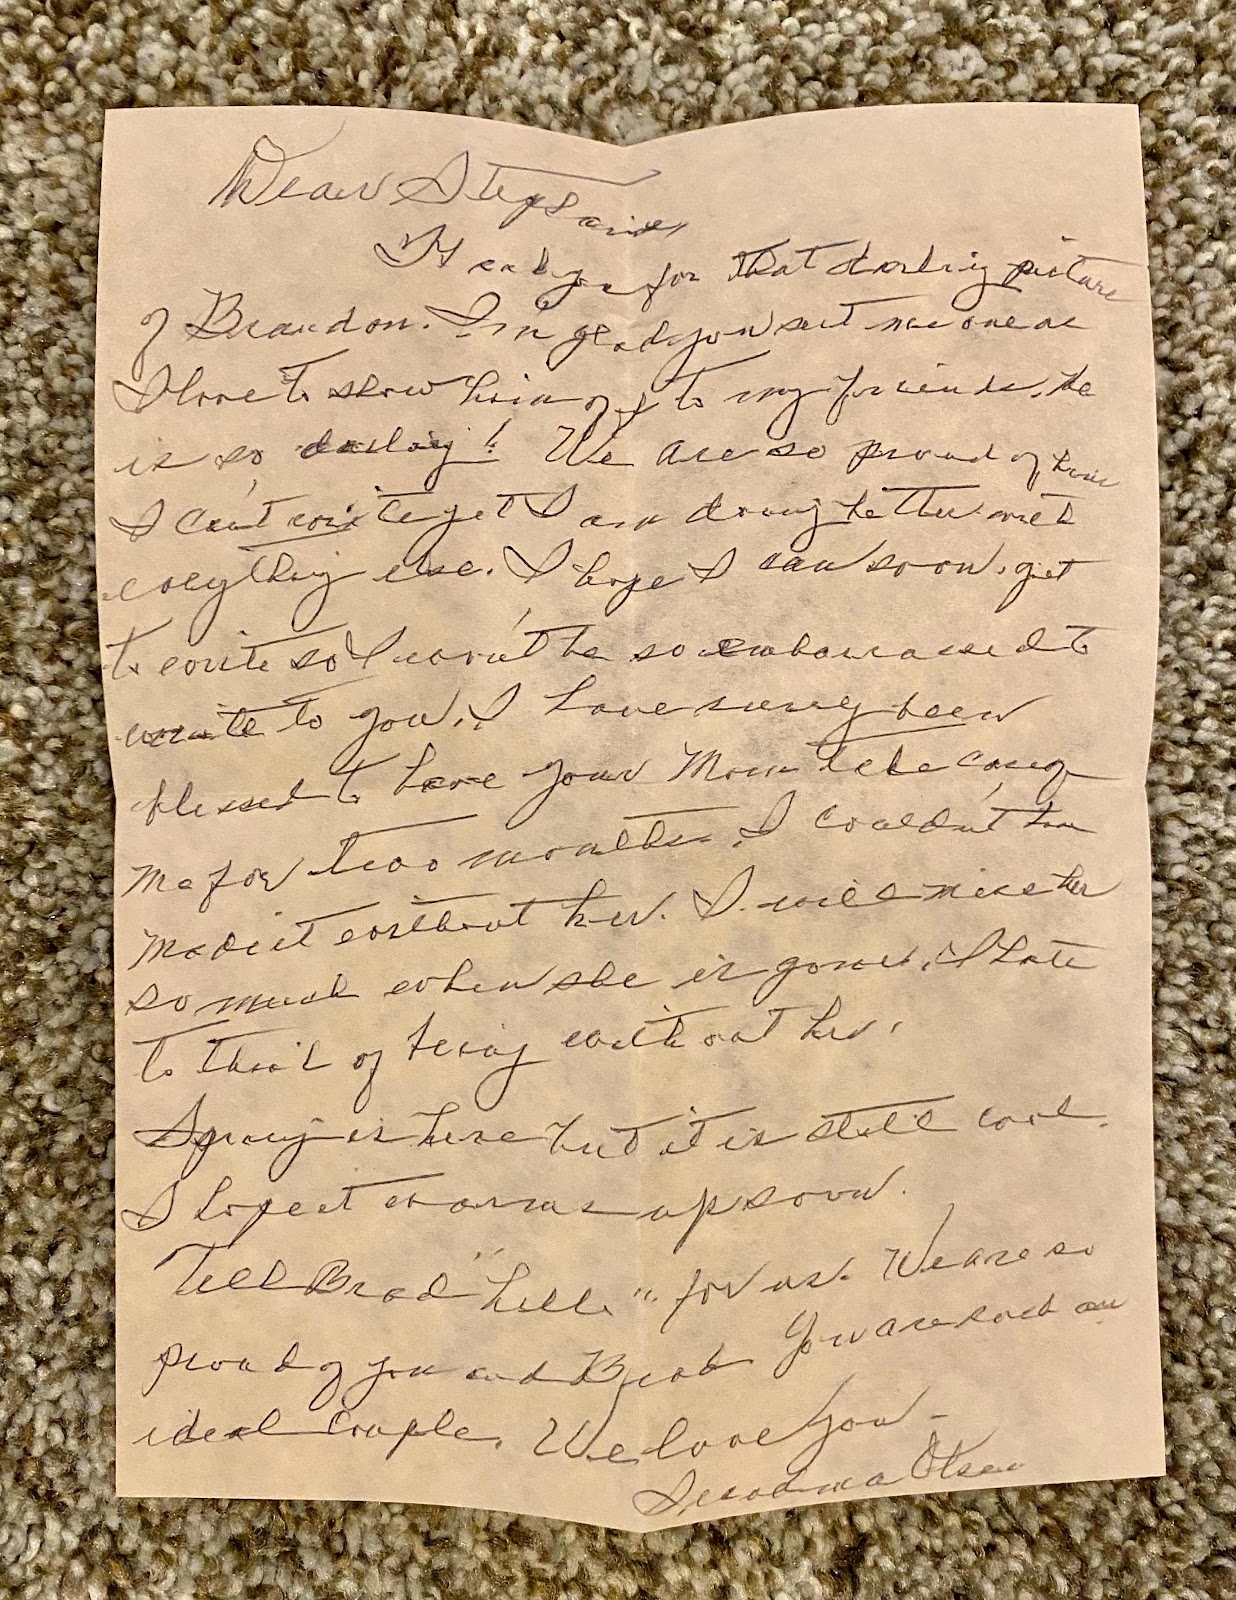 Dear Stephanie,
Thank you for that darling picture
of Brandon. I'm glad you sent me one as
I love to show him off to my friends, he
is so darling! We are so proud of him
I can't write yet I am doing better with
everything else. I hope I can soon get
to write so I won't be so embarrassed to
write to you. I have surely been
blessed to have your Mom take care of
me for two months. I couldn't have
made it without her. I will miss her
so much when she is gone. I hate
to think of being without her.
Spring is here but it is still cool.
I hope it warms up soon.
Tell Brad "hello" for us. We are so
proud of you and Brad. You are such an
ideal couple. We love you -
Grandma Olsen